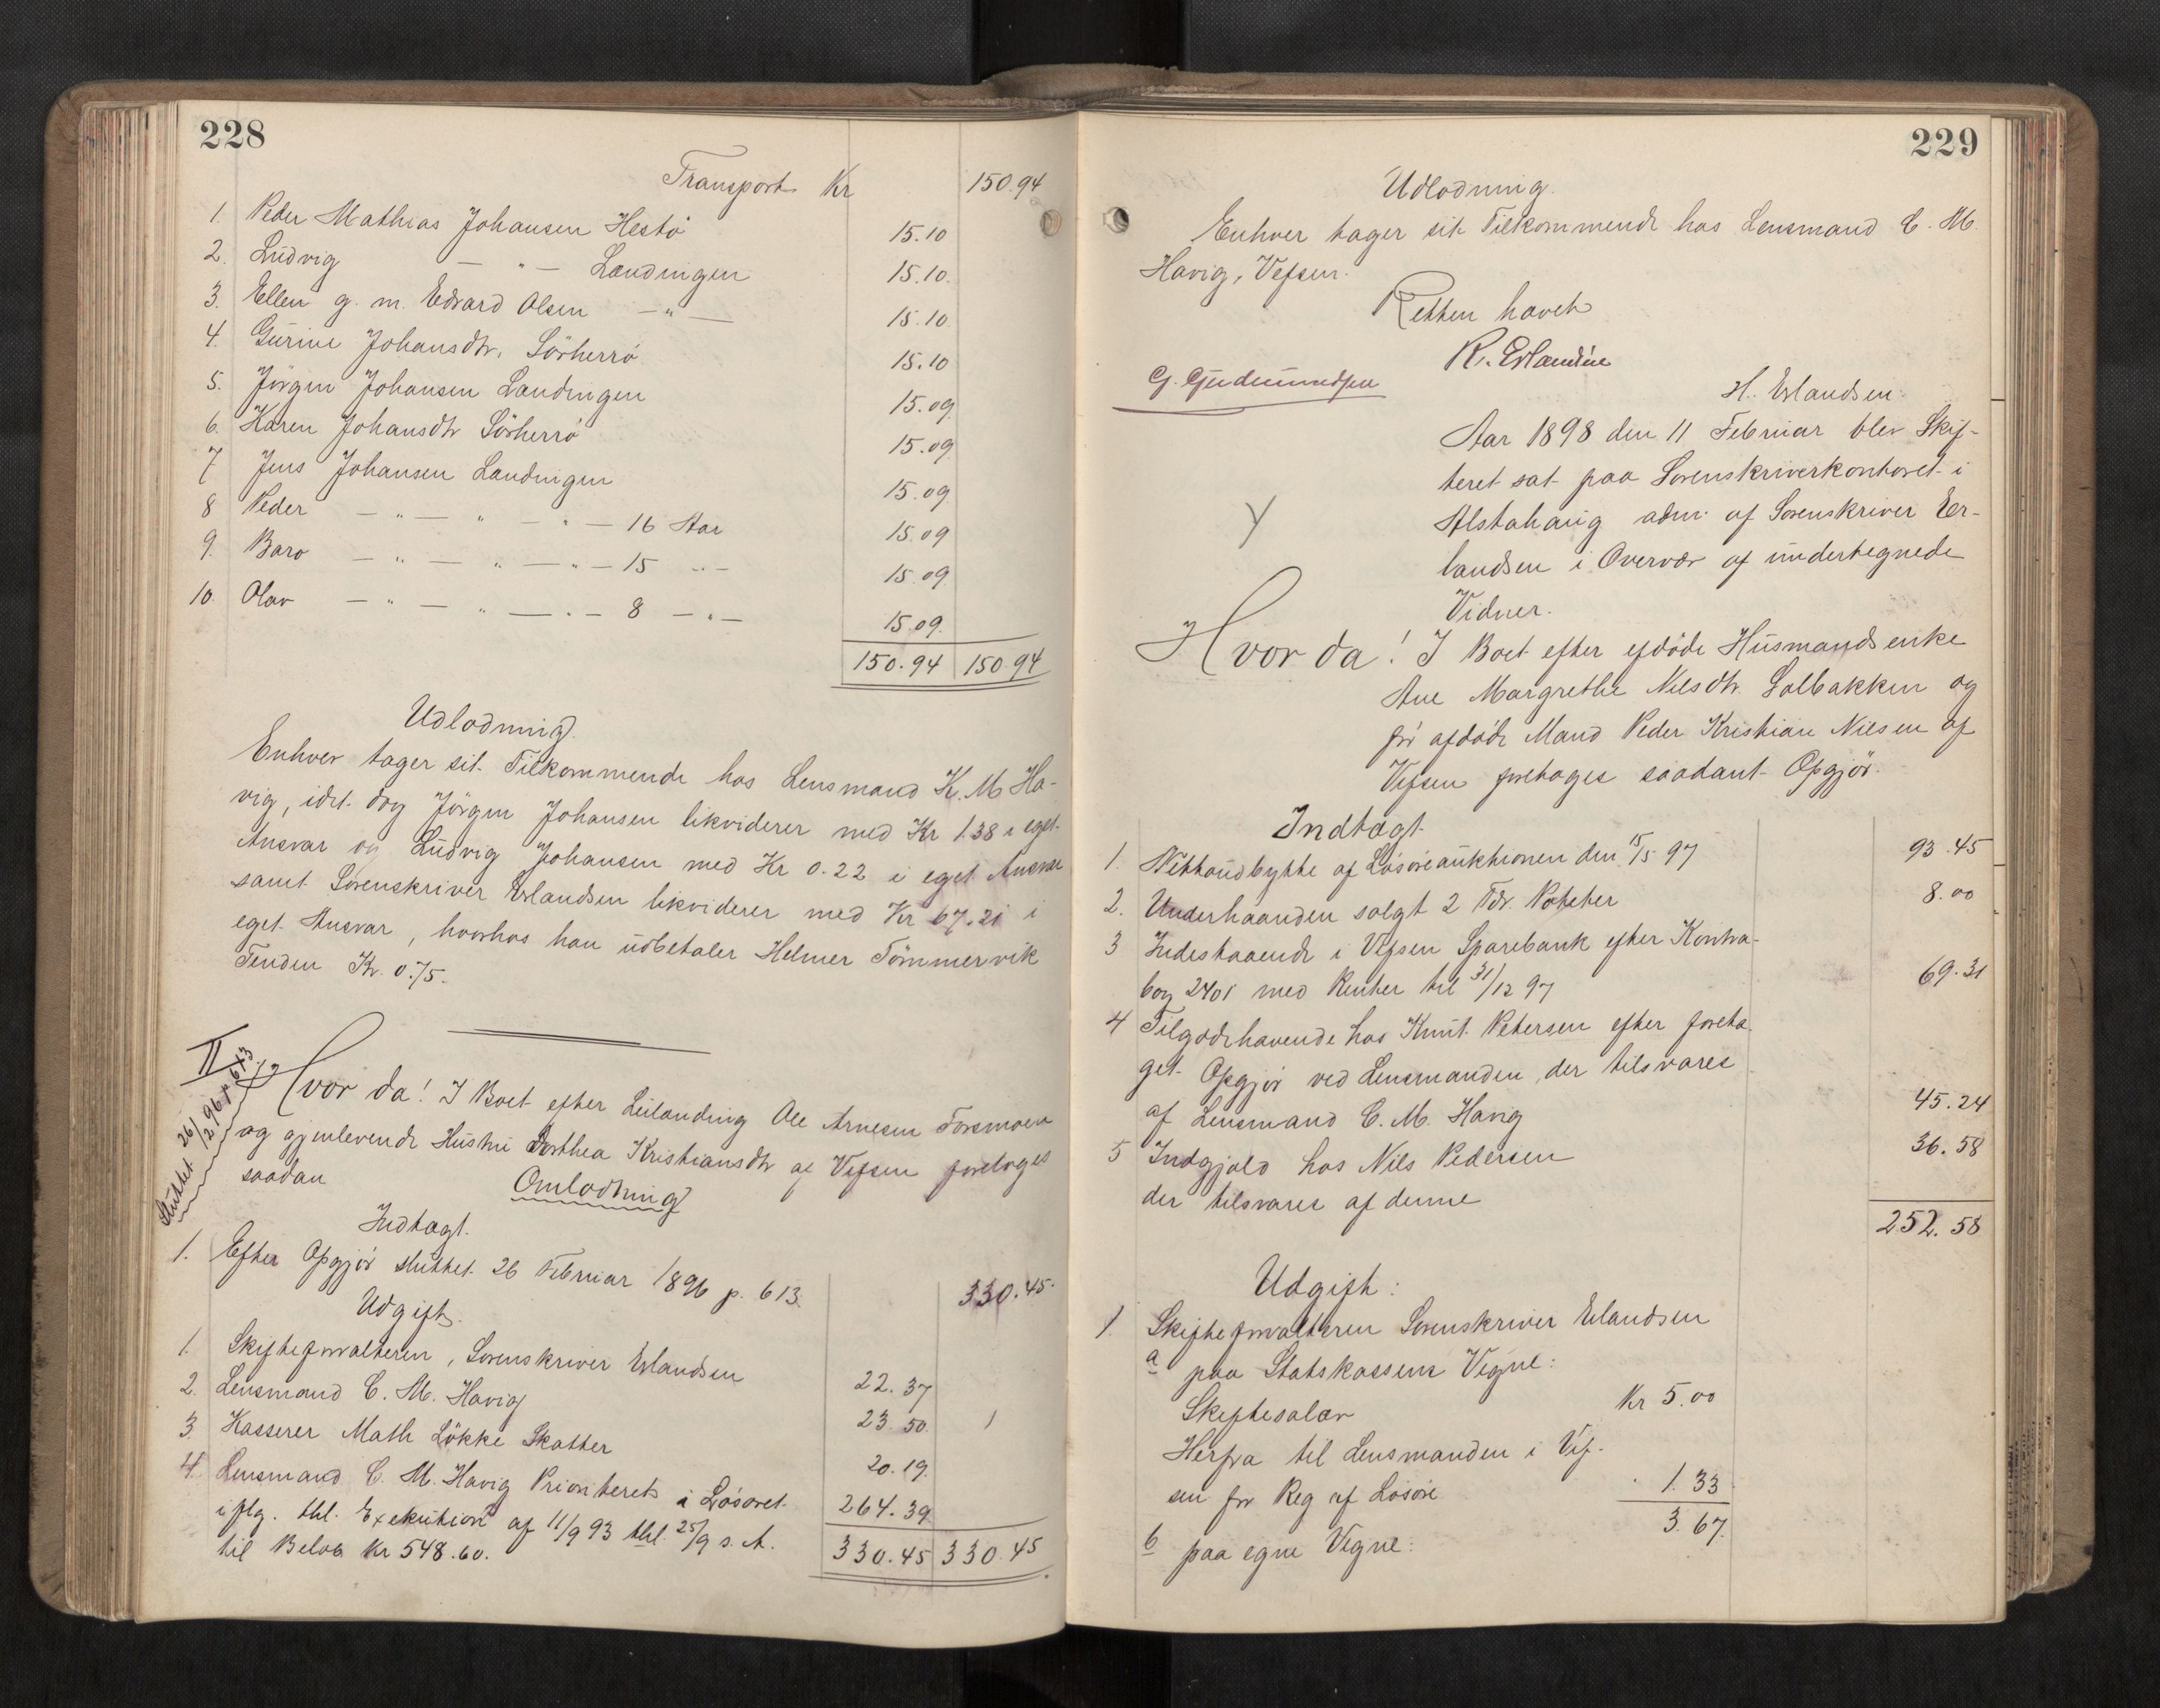 228
Transport Kr 150.94
1. Peder Mathias Johansen Hestö 15.10
2. Ludvig — " — Landingen 15.10.
3. Ellen g. m. Edvard Olsen — " — 15.10
4. Gurine Johansdtr. Sörherrö 15.10
5. Jörgen Johansen Landingen 15.09
6. Karen Johansdtr Sörherrö 15.09
7 Jens Johansen Landingen 15.09
8 Peder — " — " — " — 16 Aar 15.09
9. Baro — " — " — " — 15 " — 15.09
10. Olav — " — " — " — 8 — " — 15.09.
150.94 150.94
Udlodning.
Enhver tager sit Tilkommende hos Lensmand K. M Ha-
vig, idet dog Jörgen Johansen likviderer med Kr 1.38 i eget
Ansvar og Ludvig Johansen med Kr 0.22 i eget Ansvar
samt Sorenskriver Erlandsen likviderer med Kr 67.21 i
eget Ansvar, hvorhos han udbetaler Helmer Tömmervik
Tenden Kr. 0.75.
II
Sluttet 26/2 96 p 613
Hvor da! I Boet efter Leilænding Ole Arnesen Forsmoen
og gjenlevende Hustru Dorthea Kristiansdtr af Vefsen foretoges
saadan
Omlodning
Indtægt.
1. Efter Opgjör sluttet 26 Februar 1896 p. 613. 330.45.
Udgift.
1. Skifteforvalteren, Sorenskriver Erlandsen 22.37
2. Lensmand C. M. Havig 23.50.
3. Kasserer Math Lökke Skatter 20.19.
4. Lensmand C. M. Havig Prioriteret i Lösöret
iflg. thl. Exekution af 11/9 93 thl. 25/9 s. A. 264.39
til Beløb Kr 548.60. 330.45 330.45
229
Udlodning.
Enhver tager sit Tilkommende hos Lensmand C. M.
Havig, Vefsen.
Retten hævet
R. Erlandsen
G. Gudmundsen
H. Erlandsen.
Aar 1898 den 11 Februar blev Skif-
teret sat paa Sorenskriverkontoret i
Alstahaug adm. af Sorenskriver Er-
landsen i Overvær af undertegnede
Vidner.
Hvor da! I Boet efter afdöde Husmandsenke
Ane Margrethe Nilsdtr. Solbakken og
för afdöde Mand Peder Kristian Nilsen af
Vefsen foretoges saadant Opgjör.
Indtægt
1. Nettoudbytte af Lösöreauktionen den 15/5 97 93.45
2. Underhaanden solgt 2 Tdr. Poteter 8.00
3 Indestaaende i Vefsen Sparebank efter Kontra-
bog 2401 med Renter til 31/12 97 69.31
4 Tilgodehavende hos Knut Petersen efter foreta-
get Opgjör ved Lensmanden, der tilsvares
af Lensmand C. M. Havig 45.24
5 Indgjæld hos Nils Pedersen 36.58
der tilsvares af denne
252.58
Udgift:
1. Skifteforvalteren Sorenskriver Erlandsen
a paa Statskassens Vegne:
Skiftesalær Kr 5.00
Herfra til Lensmanden i Vef-
sen for Reg af Lösöre 1.33
3.67.
b paa egne Vegne: